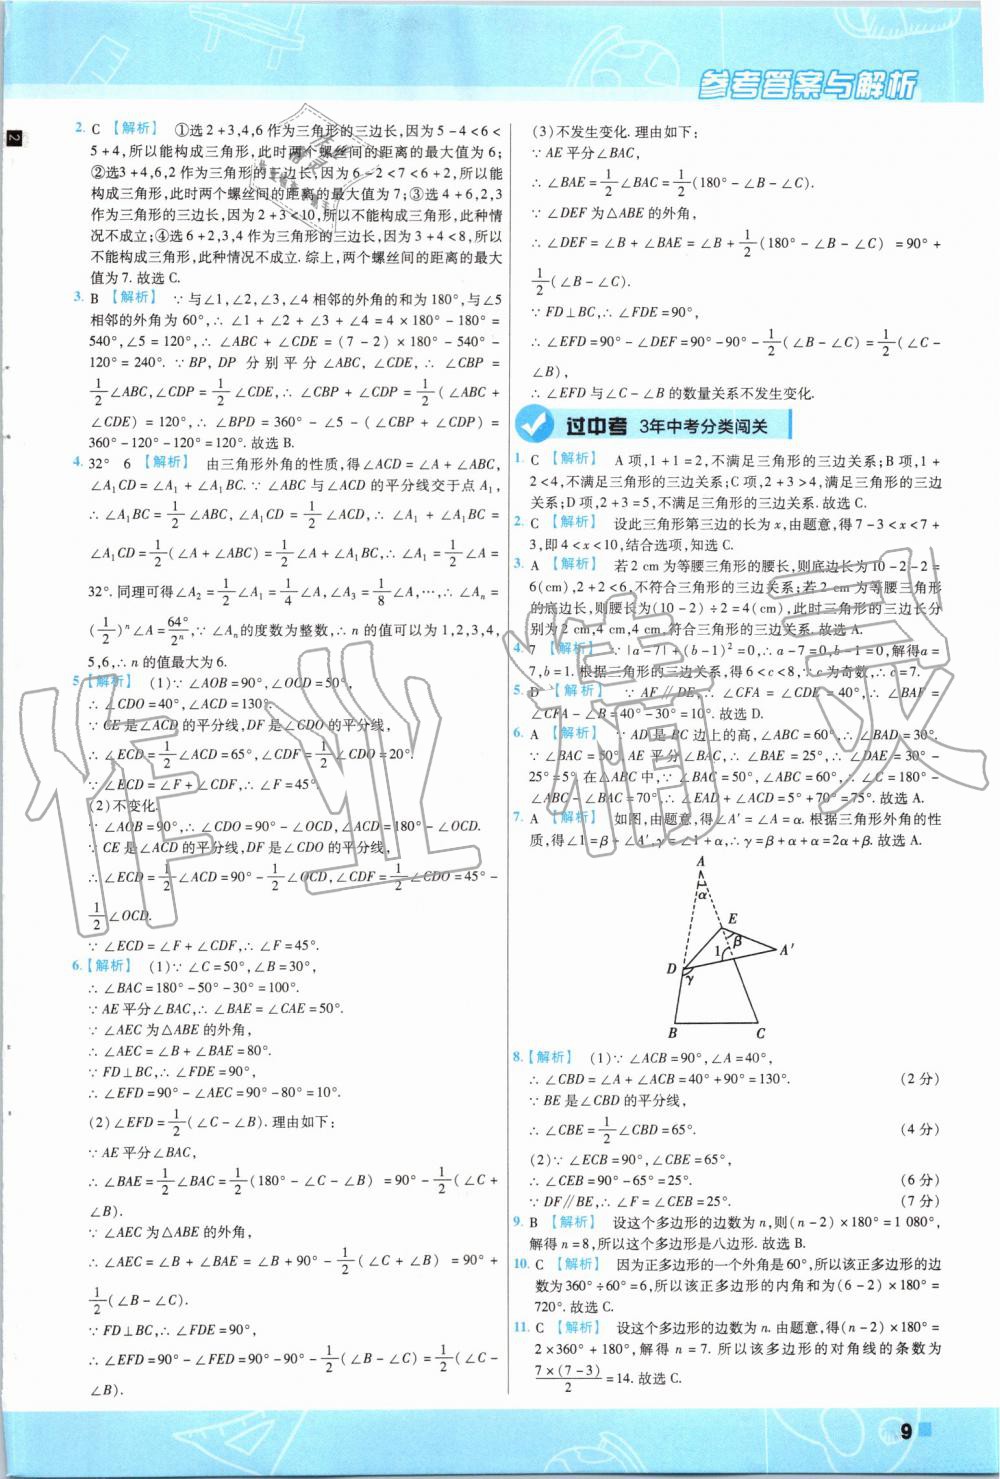 参考答案与解析
2
2. C 【解析】 ①选2+3,4,6作为三角形的三边长,因为5-4<6<
5+4,所以能构成三角形,此时两个螺丝间的距离的最大值为6;
②选3+4,6,2作为三角形的三边长,因为6-2<7<6+2,所以能
构成三角形,此时两个螺丝间的距离的最大值为7;③选4+6,2,3
作为三角形的三边长,因为2+3<10,所以不能构成三角形,此种
情况不成立;④选6+2,3,4作为三角形的三边长,因为3+4<8,所以
不能构成三角形,此种情况不成立.综上,两个螺丝间的距离的最大
值为7.故选C.
3. B 【解析】 ∵与∠1,∠2,∠3,∠4相邻的外角的和为180°,与∠5
相邻的外角为60°,∴∠1+∠2+∠3+∠4=4×180°-180°=
540°,∠5=120°,∴∠ABC+∠CDE=(7-2)×180°-540°-
120°=240°.∵BP,DP分别平分∠ABC,∠CDE,∴∠CBP=
1/2∠ABC,∠CDP=1/2∠CDE,∴∠CBP+∠CDP=1/2(∠ABC+
∠CDE)=120°,∴∠BPD=360°-∠5-∠CBP-∠CDP=
360°-120°-120°=120°.故选B.
4. 32° 6 【解析】 由三角形外角的性质,得∠ACD=∠A+∠ABC,
∠A₁CD=∠A₁+∠A₁BC.∵∠ABC与∠ACD的平分线交于点A₁,
∴∠A₁BC=1/2∠ABC,∠A₁CD=1/2∠ACD,∴∠A₁+∠A₁BC=
∠A₁CD=1/2(∠A+∠ABC)=1/2∠A+∠A₁BC,∴∠A₁=1/2∠A=
32°.同理可得∠A₂=1/2∠A₁=1/4∠A,∠A₃=1/8∠A,…,∴∠Aₙ=
(1/2)ⁿ∠A=64°/2ⁿ,∵∠Aₙ的度数为整数,∴n的值可以为1,2,3,4,
5,6,∴n的值最大为6.
5.【解析】 (1)∵∠AOB=90°,∠OCD=50°,
∴∠CDO=40°,∠ACD=130°.
∵CE是∠ACD的平分线,DF是∠CDO的平分线,
∴∠ECD=1/2∠ACD=65°,∠CDF=1/2∠CDO=20°.
∵∠ECD=∠F+∠CDF,∴∠F=45°.
(2)不变化.
∵∠AOB=90°,∴∠CDO=90°-∠OCD,∠ACD=180°-∠OCD.
∵CE是∠ACD的平分线,DF是∠CDO的平分线,
∴∠ECD=1/2∠ACD=90°-1/2∠OCD,∠CDF=1/2∠CDO=45°-
1/2∠OCD.
∵∠ECD=∠F+∠CDF,∴∠F=45°.
6.【解析】 (1)∵∠C=50°,∠B=30°,
∴∠BAC=180°-50°-30°=100°.
∵AE平分∠BAC,∴∠BAE=∠CAE=50°.
∵∠AEC为△ABE的外角,
∴∠AEC=∠B+∠BAE=80°.
∵FD⊥BC,∴∠FDE=90°,
∴∠EFD=90°-∠AEC=90°-80°=10°.
(2)∠EFD=1/2(∠C-∠B).理由如下:
∵AE平分∠BAC,
∴∠BAE=1/2∠BAC=1/2(180°-∠C-∠B)=90°-1/2(∠C+
∠B).
∵∠AEC为△ABE的外角,
∴∠AEC=∠B+∠BAE=∠B+90°-1/2(∠C+∠B)=90°+
1/2(∠B-∠C).
∵FD⊥BC,∴∠FDE=90°,
∴∠EFD=90°-∠FED=90°-90°-1/2(∠B-∠C)=1/2(∠C-
∠B).
(3)不发生变化.理由如下:
∵AE平分∠BAC,
∴∠BAE=1/2∠BAC=1/2(180°-∠B-∠C).
∵∠DEF为△ABE的外角,
∴∠DEF=∠B+∠BAE=∠B+1/2(180°-∠B-∠C)=90°+
1/2(∠B-∠C).
∵FD⊥BC,∴∠FDE=90°,
∴∠EFD=90°-∠DEF=90°-90°-1/2(∠B-∠C)=1/2(∠C-
∠B),
∴∠EFD与∠C-∠B的数量关系不发生变化.
过中考 3年中考分类闯关
1. C 【解析】 A项,1+1=2,不满足三角形的三边关系;B项,1+
2<4,不满足三角形的三边关系;C项,2+3>4,满足三角形的三边
关系;D项,2+3=5,不满足三角形的三边关系.故选C.
2. C 【解析】 设此三角形第三边的长为x,由题意,得7-3<x<7+
3,即4<x<10,结合选项,知选C.
3. A 【解析】 若2 cm为等腰三角形的腰长,则底边长为10-2-2=
6(cm),2+2<6,不符合三角形的三边关系;若2 cm为等腰三角形
的底边长,则腰长为(10-2)÷2=4(cm),此时三角形的三边长分
别为2 cm,4 cm,4 cm,符合三角形的三边关系.故选A.
4. 7 【解析】 ∵|a-7|+(b-1)²=0,∴a-7=0,b-1=0,解得a=
7,b=1.根据三角形的三边关系,得6<c<8,∵c为奇数,∴c=7.
5. D 【解析】 ∵AF∥DE,∴∠CFA=∠CDE=40°,∴∠BAF=
∠CFA-∠B=40°-30°=10°.故选D.
6. A 【解析】 ∵AD是BC边上的高,∠ABC=60°,∴∠BAD=30°.
∵∠BAC=50°,AE平分∠BAC,∴∠BAE=25°,∴∠DAE=30°-
25°=5°.在△ABC中,∵∠BAC=50°,∠ABC=60°,∴∠C=180°-
∠ABC-∠BAC=70°,∴∠EAD+∠ACD=5°+70°=75°.故选A.
7. A 【解析】 如图,由题意,得∠A'=∠A=α.根据三角形外角的性
质,得∠1=β+∠A',γ=∠1+α,∴γ=β+α+α=2α+β.故选A.
A
α
E
β
1
A'
D
γ
B C
8.【解析】 (1)∵∠ACB=90°,∠A=40°,
∴∠CBD=∠A+∠ACB=40°+90°=130°. (2分)
∵BE是∠CBD的平分线,
∴∠CBE=1/2∠CBD=65°. (4分)
(2)∵∠ECB=90°,∠CBE=65°,
∴∠CEB=90°-65°=25°. (6分)
∵DF∥BE,∴∠F=∠CEB=25°. (7分)
9. B 【解析】 设这个多边形的边数为n,则(n-2)×180°=1 080°,
解得n=8,所以这个多边形是八边形.故选B.
10. C 【解析】 因为正多边形的一个外角是60°,所以该正多边形的边
数为360°÷60°=6,所以该正多边形的内角和为(6-2)×180°=
720°.故选C.
11. C 【解析】 设这个多边形的边数为n.由题意,得(n-2)×180°=
2×360°+180°,解得n=7.所以该多边形的对角线的条数为
7×(7-3)/2=14.故选C.
9
作业精灵